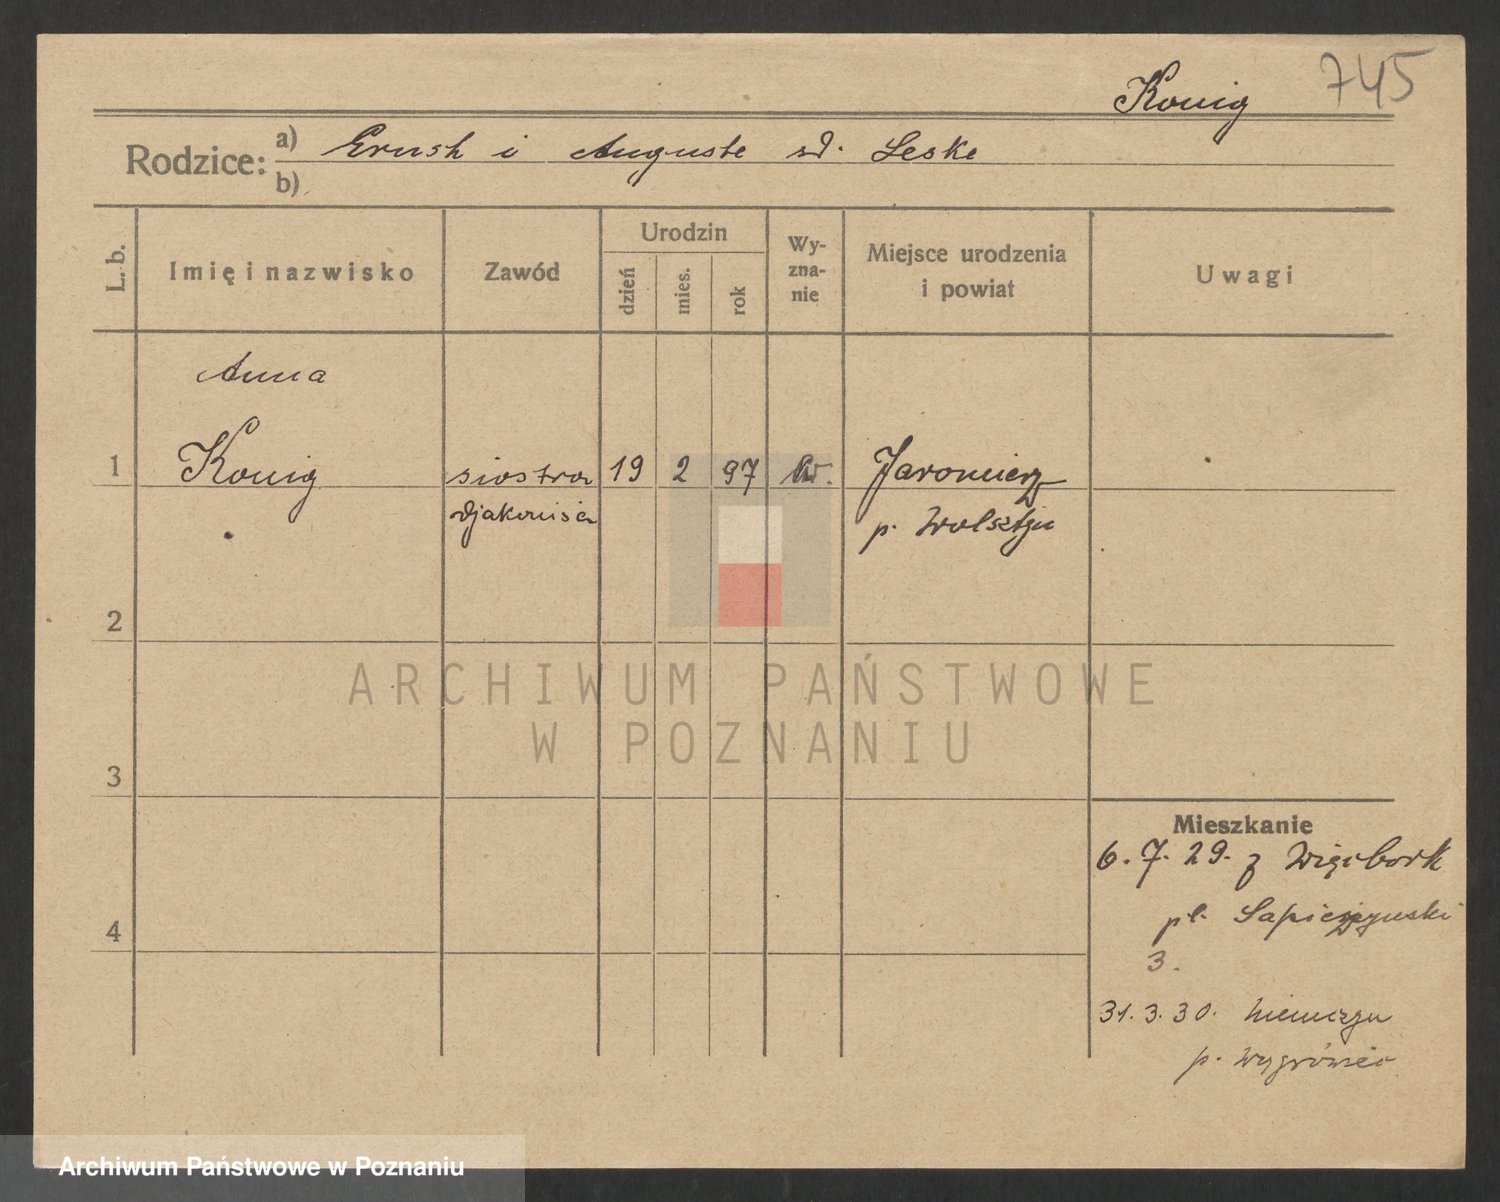 745
Konig
Rodzice: a) Ernst i Auguste zd. Leske
b)
L. b.
Imię i nazwisko
Zawód
Urodzin
dzień
mies.
rok
Wy-
zna-
nie
Miejsce urodzenia
i powiat
Uwagi
Anna
1 Konig siostra 19 2 97 Jaromierz
djakonisa p. Wolsztyn
2
3
4
Mieszkanie
6. 7. 29. z Więcbork
pl. Sapieżynski
3.
31. 3. 30. Niemczyn
p. Wągrówiec
ARCHIWUM PAŃSTWOWE
W POZNANIU
Archiwum Państwowe w Poznaniu